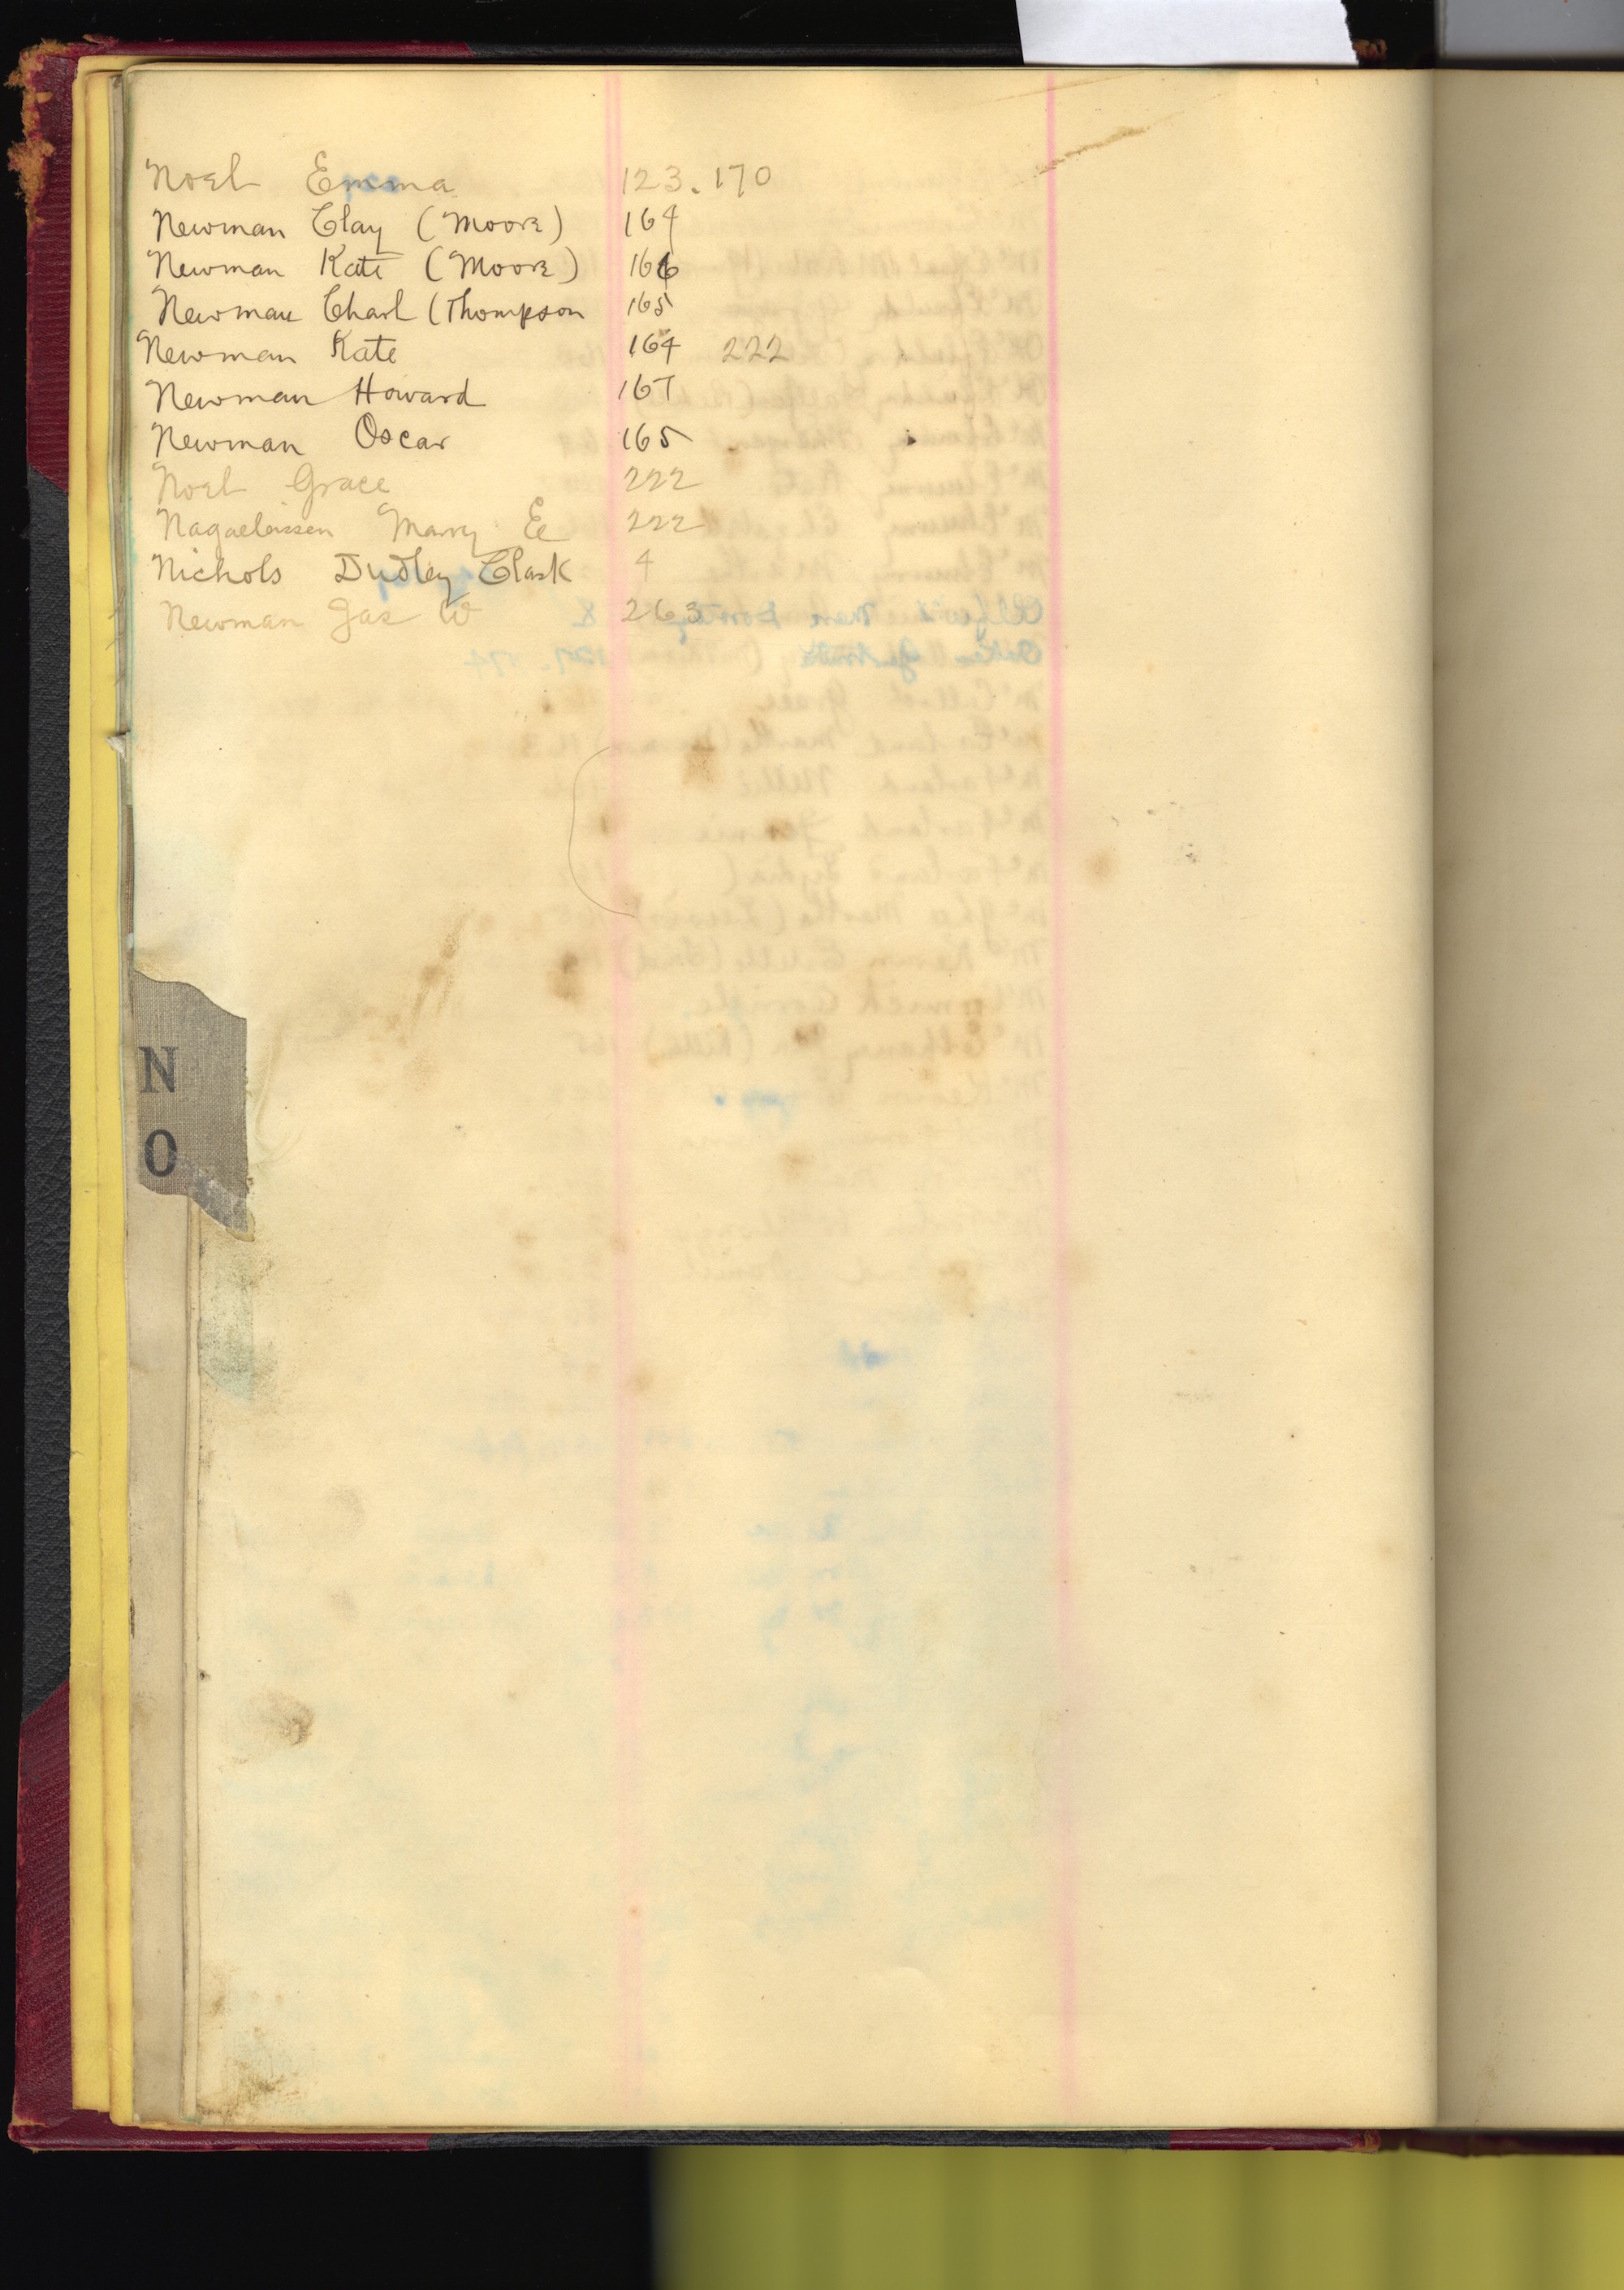 Noel Emma 123. 170
Newman Clay (Moore) 164
Newman Kate (Moore) 166
Newman Charl (Thompson 165
Newman Kate 164 222
Newman Howard 167
Newman Oscar 165
Noel Grace 222
Mary E 222
Nichols Dudley Clark 4
Newman Jas W 263
N
O